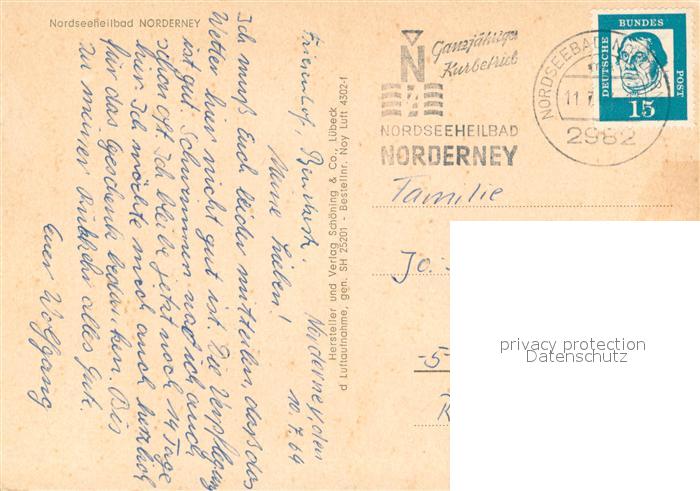 Nordseeheilbad NORDERNEY
Norderney den
10.7.64
Meine Lieben!
Ich muß Euch leider mitteilen, daß das
Wetter hier nicht gut ist. Die Verpflegung
ist gut. Schwimmen war ich auch
schon oft. Ich bleibe jetzt noch 14 Tage
hier. Ich möchte mich auch herzlich
für das Geschenk bedanken. Bis
zu meiner Rückkehr alles Gute.
Euer Wolfgang
Hersteller und Verlag Schöning & Co., Lübeck
d Luftaufnahme, gen. SH 25201 - Bestellnr. Noy Luft 4302-f
Ganzjähriger
Kurbetrieb
N
NORDSEEHEILBAD
NORDERNEY
NORDSEEBAD
11.7.
2982
DEUTSCHE BUNDES POST
15
Familie
Jo.
-5-
privacy protection
Datenschutz